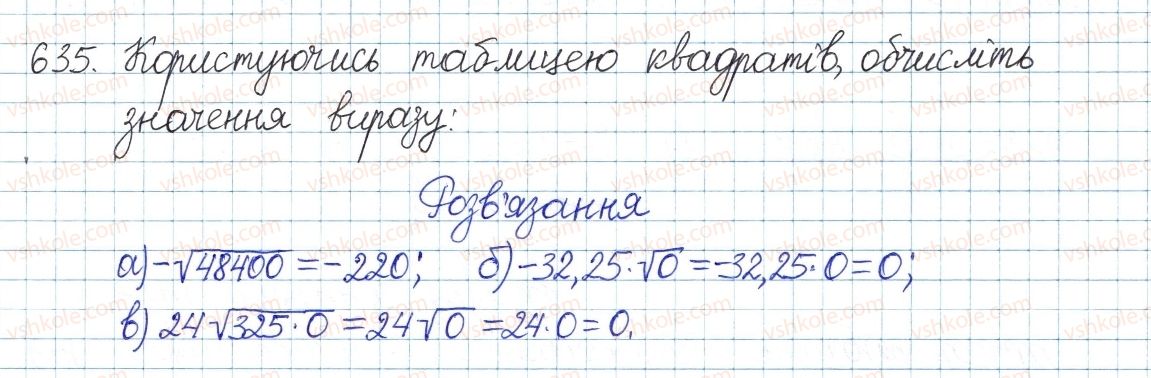 635. Користуючись таблицею квадратів, обчисліть
значення виразу:
Розв'язання
а) -√48400 = -220; б) -32,25·√0 = -32,25·0 = 0;
в) 24√325·0 = 24√0 = 24·0 = 0.